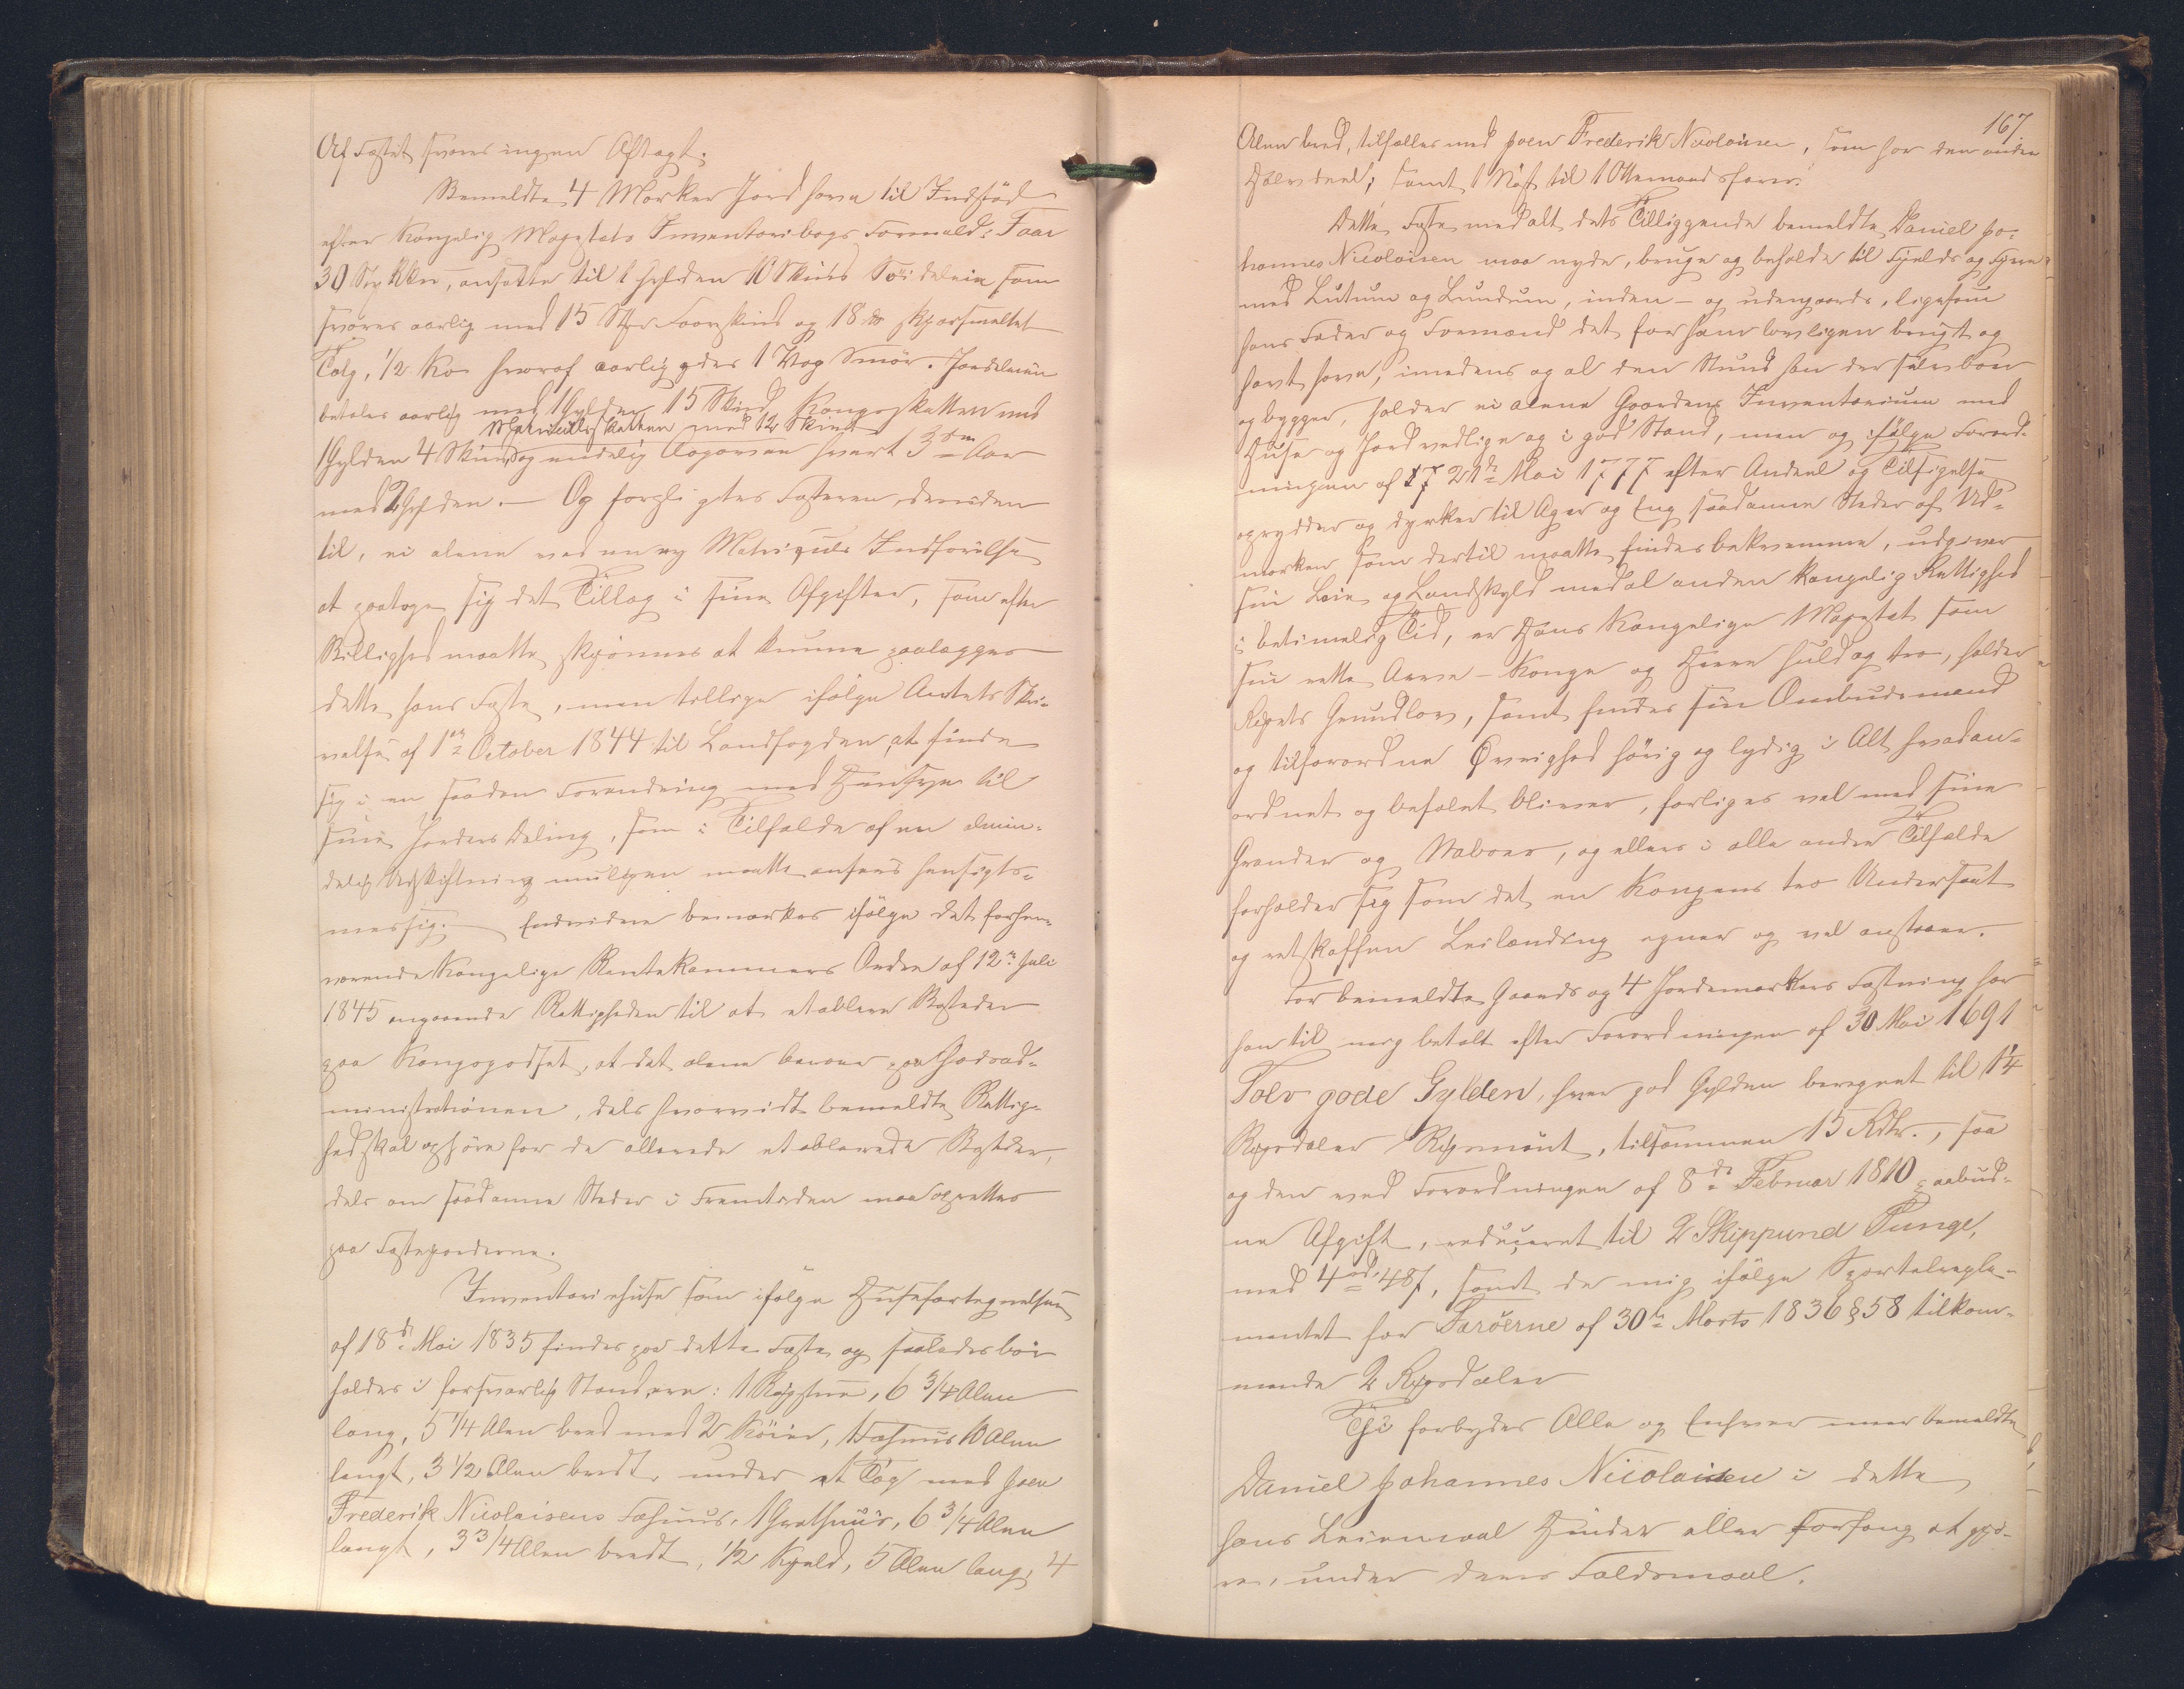 Af Fæstet svares ingen Aftægt.
Bemeldte 4 Marker Jord have til Indstöd
efter Kongelig Majestæts Inventariebogs Formeld: Faar
30 Stykker, ansatte til 1 Gylden 10 Skind Söideleie som
svares aarlig med 15 Stk Faareskind og 18 ℔ skjærsmeltet
Talg, 1/2 Ko hvoraf aarlig ydes 1 Vog Smör. Jordeleien
betales aarlig med 1 Gylden 15 Skind, Kongeskatten med
Matriculskatten med 12 Skind
1 Gylden 4 Skind, og endelig hvert 3die Aar
med 2 Gylden. — Og forpligtes Fæsteren desuden
til, ei alene ved en ny Matriquls Indförelse
at paatage sig det Tillæg i sine Afgifter, som efter
Billighed maatte skjönnes at kunne paalægges
dette hans Fæste, men tillige ifölge Amtets Skri-
velse af 1ste October 1844 til Landfogden, at finde
sig i en saadan Forandring med Hensyn til
sine Jorders Deling, som i Tilfælde af en almin-
delig Udskiftning muligen maatte ansees hensigts-
mæssig. Endvidere bemærkes ifölge det forhen-
værende Kongelige Rentekammers Ordre af 12te Juli
1845 angaaende Rettigheden til at etablere Bosteder
paa Kongsgodset, at det alene beroer paa Godsad-
ministrationen, dels hvorvidt bemeldte Rettig-
hed skal ophöre for de allerede etablerede Bosteder,
dels om saadanne Steder i Fremtiden maa oprettes
paa Fæstejorderne.
Inventariehuse som ifölge Husefortegnelsen
af 18de Mai 1835 findes paa dette Fæste og saaledes bör
holdes i forsvarlig Stand, ere: 1 Rögstue, 6 3/4 Alen
lang, 5 1/4 Alen bred med 2 Köier, 1 Fæhuus 10 Alen
langt, 3 1/2 Alen bredt, under et Tag med Joen
Frederik Nicolaisens Fæhuus, 1 6 3/4 Alen
langt, 3 3/4 Alen bredt, 1/2 Kjeld, 5 Alen lang, 4
167.
Alen bred, tilfælles med Joen Frederik Nicolaisen, som har den anden
Halvdeel; samt 1 Nöst til 1 Ottemandsfarer.
Dette Fæste med alt dets Tilliggende bemeldte Daniel Jo-
hannes Nicolaisen maa nyde, bruge og beholde til Fjelds og Fjære
med Lutum og Lundum, inden- og udengaards, ligesom
hans Fader og Formænd det for ham lovligen brugt og
havt have, imedens og al den Stund han der selv boer
og bygger, holder ei alene Gaardens Inventarium med
Huse og Jord vedlige og i god Stand, men og ifölge Forord-
ningen af 21de Mai 1777 efter Andeel og Tilsigelse
oprydder og dyrker til Ager og Eng saadanne Steder af Ud-
marken som dertil maatte findes bekvemme, udgiver
sin Leie og Landskyld med al anden kongelig Rettighed
i betimelig Tid, er Hans Kongelige Majestæt som
sin rette Arve-Konge og Herre huld og tro, holder
Rigets Grundlov, samt findes sin Ombudsmand
og tilforordnede Øvrighed hörig og lydig i Alt hvadan-
ordnet og befalet bliver, forliges vel med sine
Grander og Naboer, og ellers i alle andre Tilfælde
forholder sig som det en Kongens tro Undersaat
og retskaffen Leilænding egner og vel anstaaer.
For bemeldte Gaards og 4 Jordemarkers Fæstning har
han til mig betalt efter Forordningen af 30 Mai 1691
Tolv gode Gylden, hver god Gylden beregnet til 1 1/4
Rigsdaler Rigsmönt, tilsammen 15 Rdlr., saa
og den ved Forordningen af 8de Februar 1810 paabud-
ne Afgift, reduceret til 2 Skippund Tunge,
med 4rd 48s, samt de mig ifölge Sportelregle-
mentet for Færöerne af 30te Marts 1836 § 58 tilkom-
mende 2 Rigsdaler
Thi forbydes Alle og Enhver meer bemeldte
Daniel Johannes Nicolaisen i dette
hans Leiemaal Hinder eller Forfang at gjö-
re, under deres Faldsmaal.